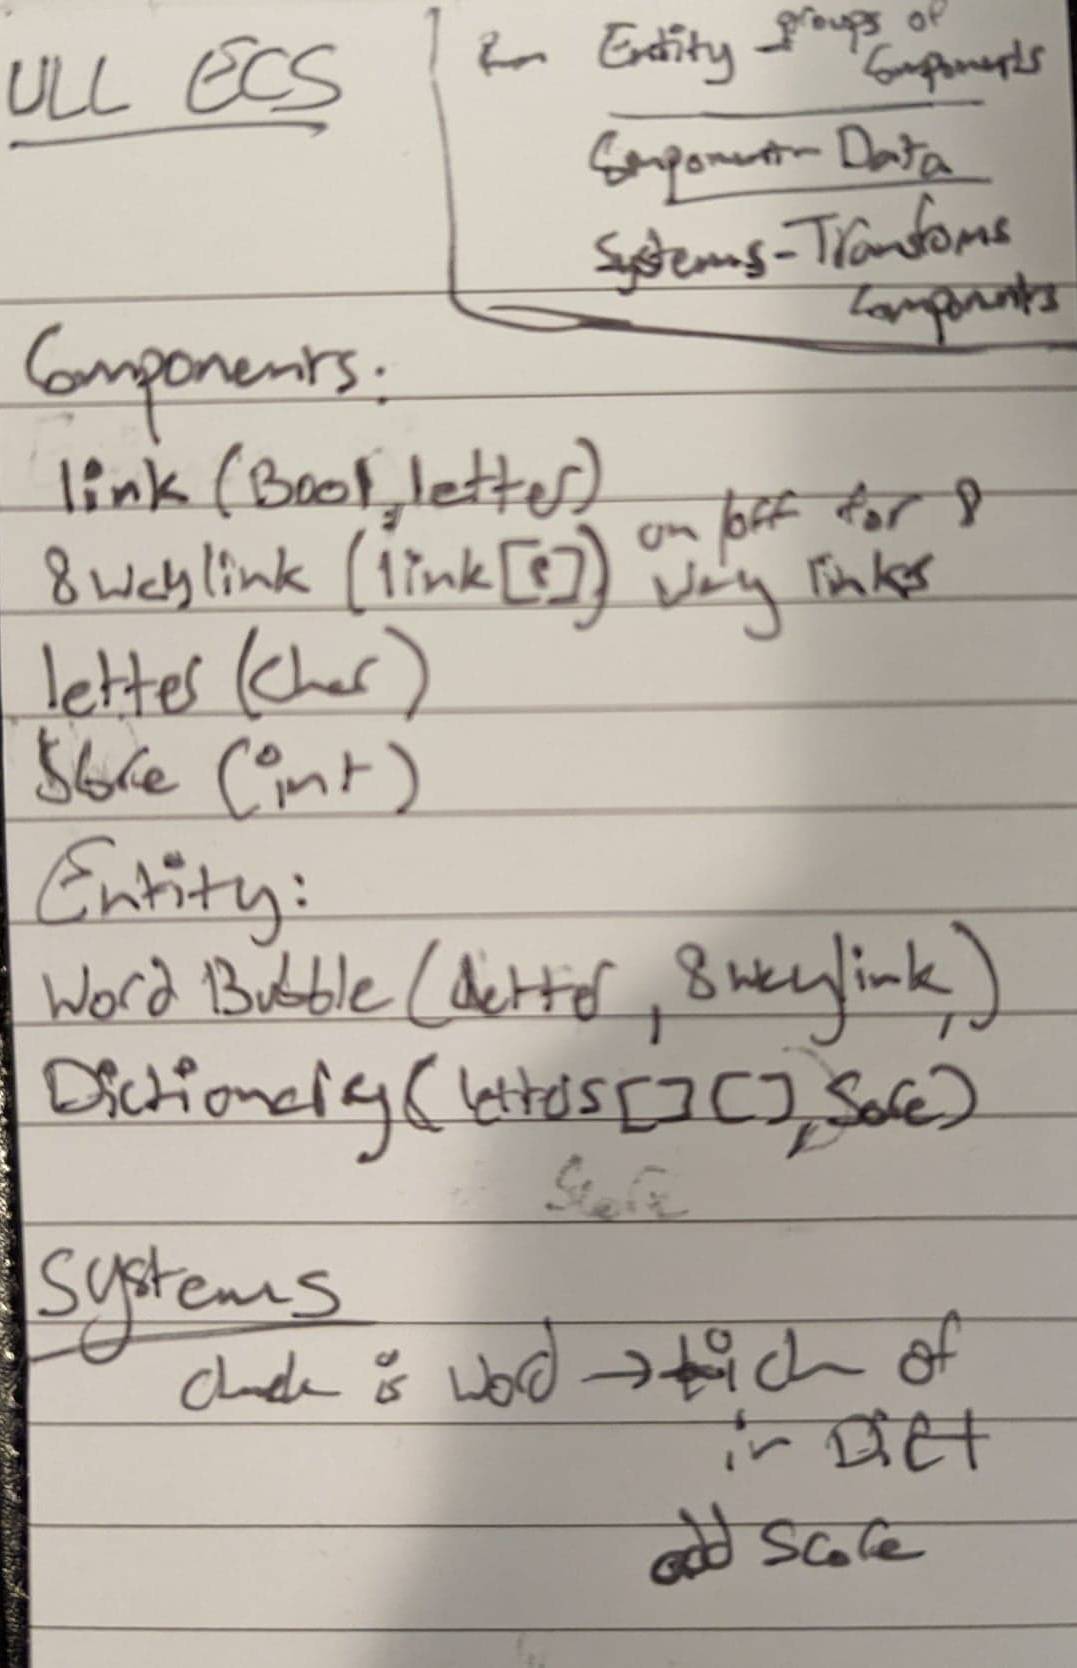 ULL ECS
Entity - groups of
Components
Component - Data
Systems - Transforms
Components
Components:
link (Bool, letter)
8waylink (link[8]) on/off for 8
way links
letter (char)
Score (int)
Entity:
Word Bubble (letter, 8waylink,)
Dictionary (letters[][], Score)
Score
Systems
check is word → tick of
in Dict
add score